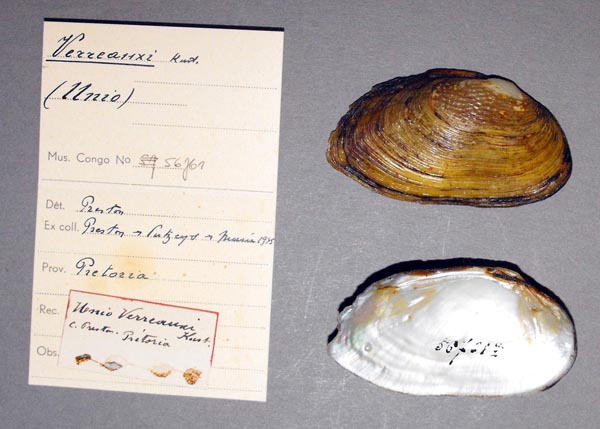 Verreauxi Kust.
(Unio)
Mus. Congo No 56761
Dét. Preston
Ex coll. Preston → Putzeys → Musée 1935
Prov. Pretoria
Rec.
Unio Verreauxi
Kust.
c. Preston. Prétoria
Obs.